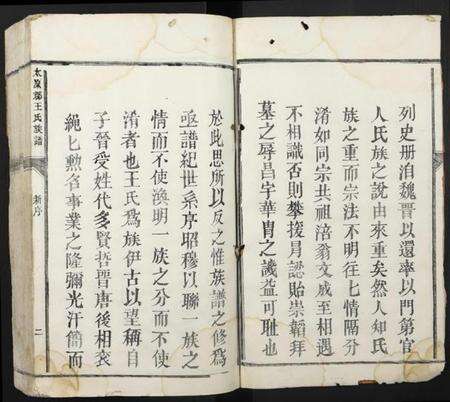 列史册洎魏晋以還率以門第官
人氏族之說由來重矣然人知氏
族之重而宗法不明往匕情隔分
淆如同宗共祖涪翁文咸至相遇
不相識否則攀援冐認貽崇韜拜
墓之辱昌宇華胄之譏益可耻也
於此思所以反之惟族譜之修爲
亟譜紀世系序昭穆以聯一族之
情而不使渙明一族之分而不使
淆者也王氏爲族伊古以望稱自
子晉受姓代多賢哲晋唐後相衮
繩匕勲名事業之隆彌光汗簡而
太原郡王氏族譜
新序
二